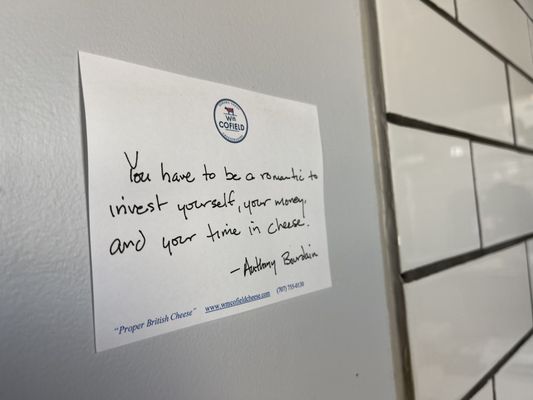 Wm
COFIELD
You have to be a romantic to
invest yourself, your money,
and your time in cheese.
- Anthony Bourdain
"Proper British Cheese" www.wmcofieldcheese.com (707) 755-0130